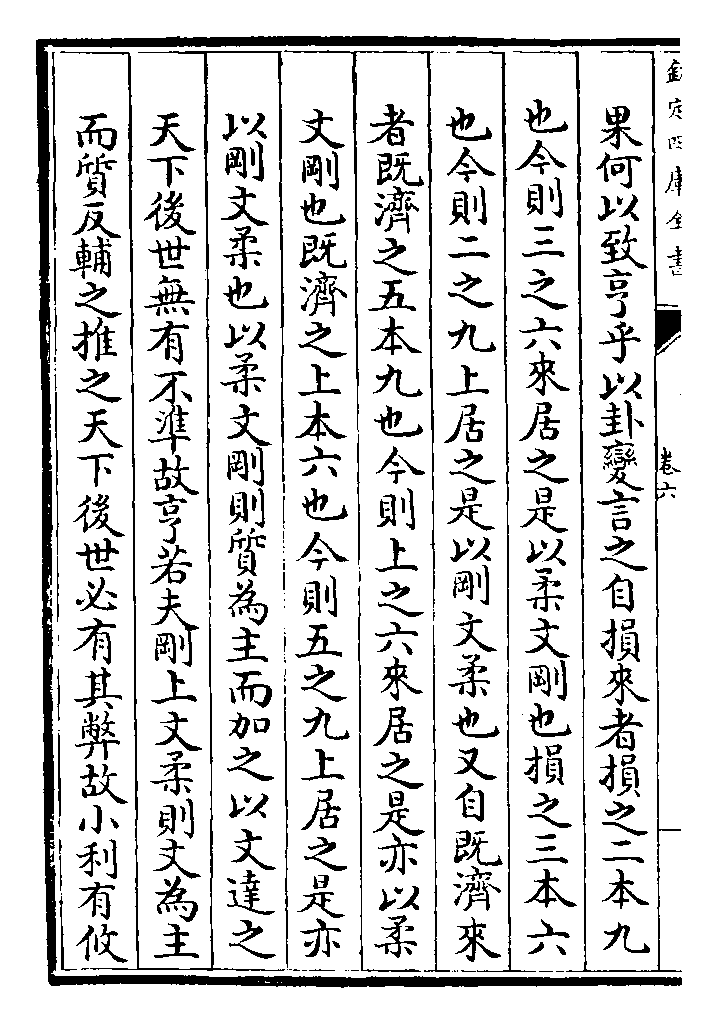 欽定四庫全書
卷六
果何以致亨乎以卦變言之自損來者損之二本九
也今則三之六來居之是以柔文剛也損之三本六
也今則二之九上居之是以剛文柔也又自既濟來
者既濟之五本九也今則上之六來居之是亦以柔
文剛也既濟之上本六也今則五之九上居之是亦
以剛文柔也以柔文剛則質為主而加之以文達之
天下後世無有不準故亨若夫剛上文柔則文為主
而質反輔之推之天下後世必有其弊故小利有攸